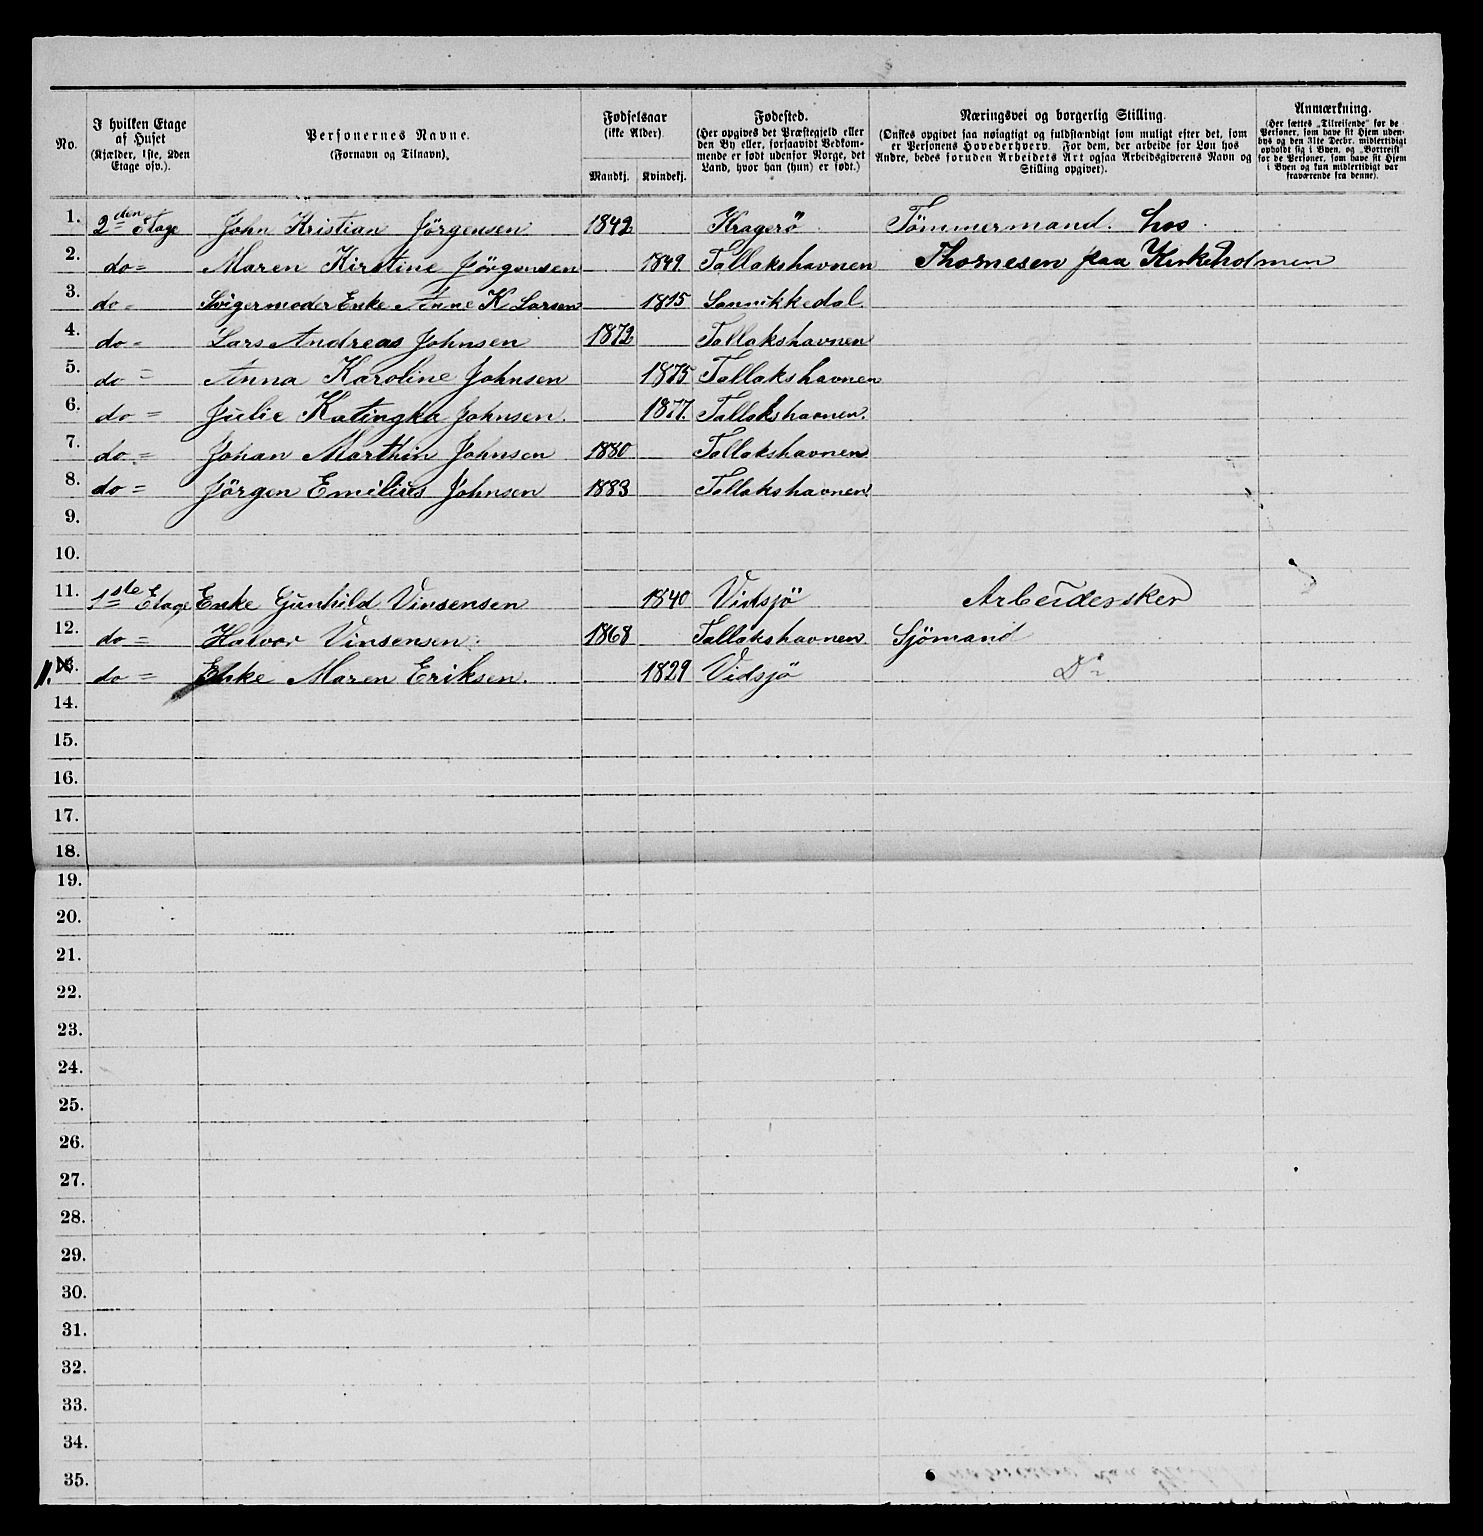 No.
I hvilken Etage af Huset (Kjælder, 1ste, 2den Etage osv.).
Personernes Navne. (Fornavn og Tilnavn).
Fødselsaar (ikke Alder).
Mandkj. Kvindekj.
Fødested. (Her opgives det Præstegjeld eller den By eller, forsaavidt Vedkommende er født udenfor Norge, det Land, hvor han (hun) er født.)
Næringsvei og borgerlig Stilling. (Ønskes opgivet saa nøiagtigt og fuldstændigt som muligt efter det, som er Personens Hovederhverv. For dem, der arbeide for Løn hos Andre, bedes foruden Arbeidets Art ogsaa Arbeidsgiverens Navn og Stilling opgivet).
Anmærkning. (Her sættes „Tilreisende" for de Personer, som have sit Hjem udenbys og den 31te Decbr. midlertidigt opholdt sig i Byen, og „Bortreist" for de Personer, som have sit Hjem i Byen og kun midlertidigt var fraværende fra denne).
1. 2den Etage John Kristian Jörgensen 1842 Kragerö Tömmermand. hos
2. do= Maren Kirstine Jörgensen 1849 Tallakshavnen Thornesen paa Kirkeholmen
3. do= Svigermoder Enke Anne K Larsen 1815 Sannikkedal
4. do= Lars Andreas Johnsen 1872 Tallakshavnen
5. do= Anna Karoline Johnsen 1875 Tallakshavnen
6. do= Julie Katingka Johnsen. 1877. Tallakshavnen.
7. do= Johan Marthin Johnsen 1880 Tallakshavnen
8. do= Jörgen Emilius Johnsen 1883 Tallakshavnen
9.
10.
11. 1ste Etage Enke Gunhild Vinsensen 1840 Vidsjö Arbeidersker
12. do= Halvor Vinsensen. 1868 Tallakshavnen Sjömand
11. do= Enke Maren Eriksen. 1829 Vidsjö Do
14.
15.
16.
17.
18.
19.
20.
21.
22.
23.
24.
25.
26.
27.
28.
29.
30.
31.
32.
33.
34.
35.